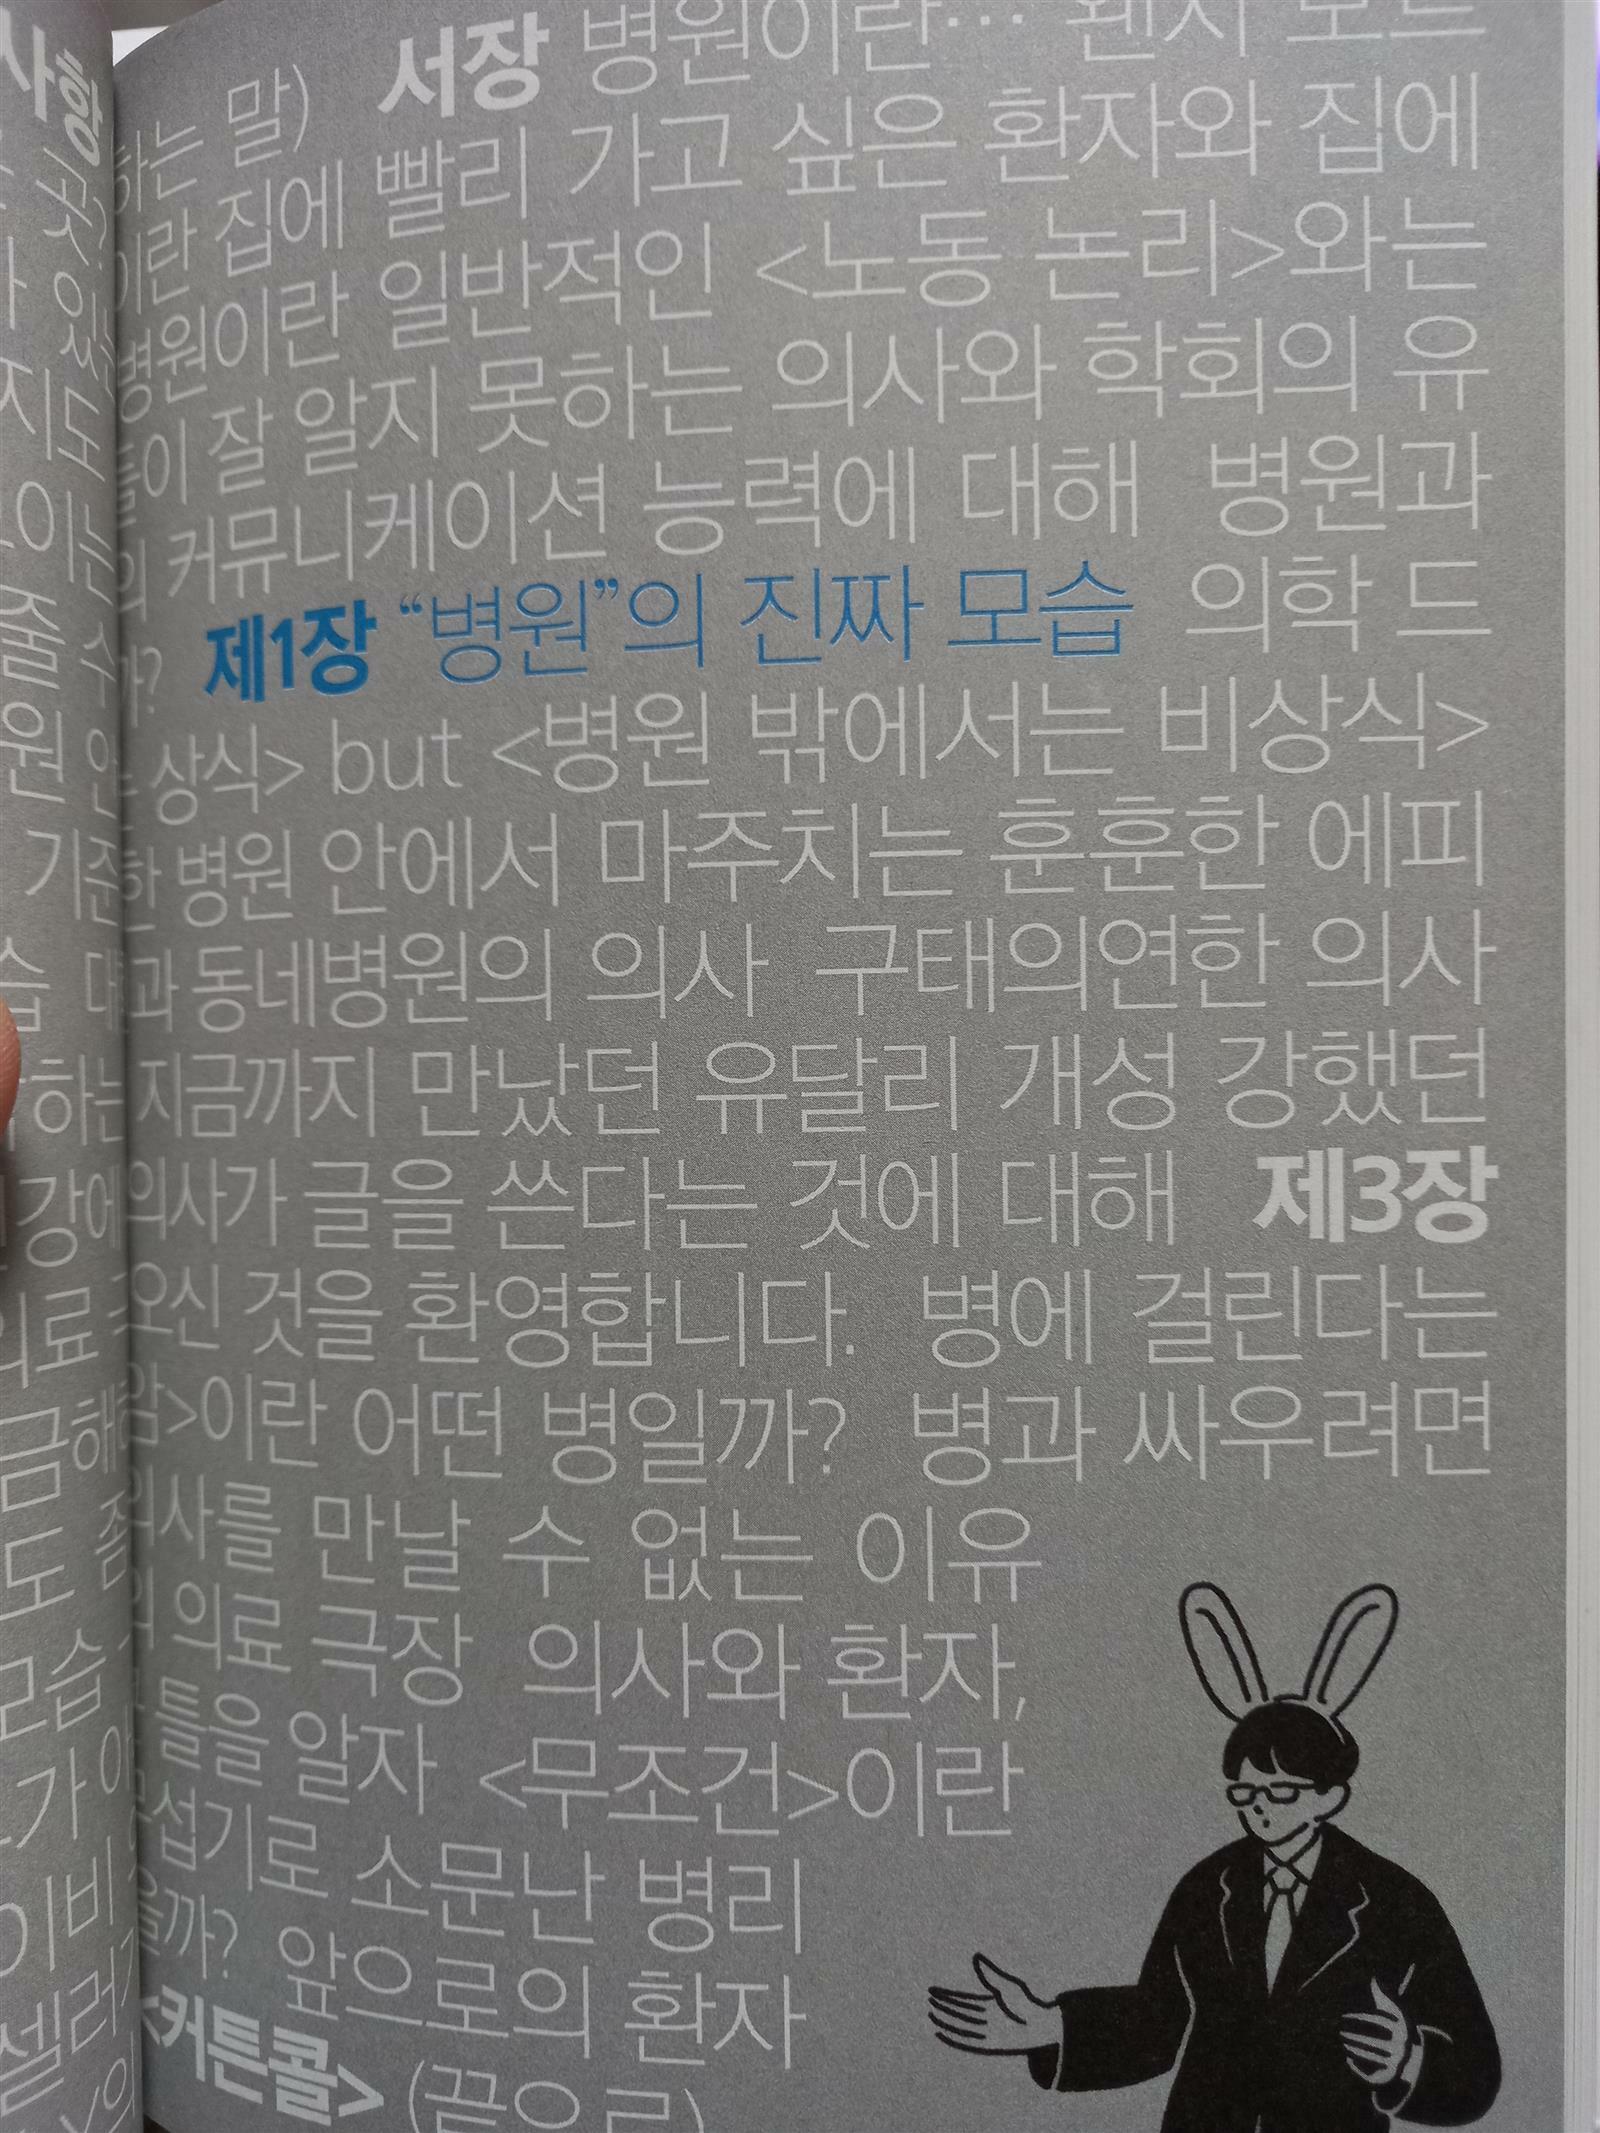 서장 병원이란…
하는 말)
이란 집에 빨리 가고 싶은 환자와 집에
병원이란 일반적인 <노동 논리>와는
들이 잘 알지 못하는 의사와 학회의 유
의 커뮤니케이션 능력에 대해 병원과
까? 제1장 “병원”의 진짜 모습 의학 드
상식> but <병원 밖에서는 비상식>
한 병원 안에서 마주치는 훈훈한 에피
과 동네병원의 의사 구태의연한 의사
지금까지 만났던 유달리 개성 강했던
의사가 글을 쓴다는 것에 대해 제3장
오신 것을 환영합니다. 병에 걸린다는
암>이란 어떤 병일까? 병과 싸우려면
의사를 만날 수 없는 이유
의료 극장 의사와 환자,
틀을 알자 <무조건>이란
섭기로 소문난 병리
을까? 앞으로의 환자
<커튼콜> (끝으로)